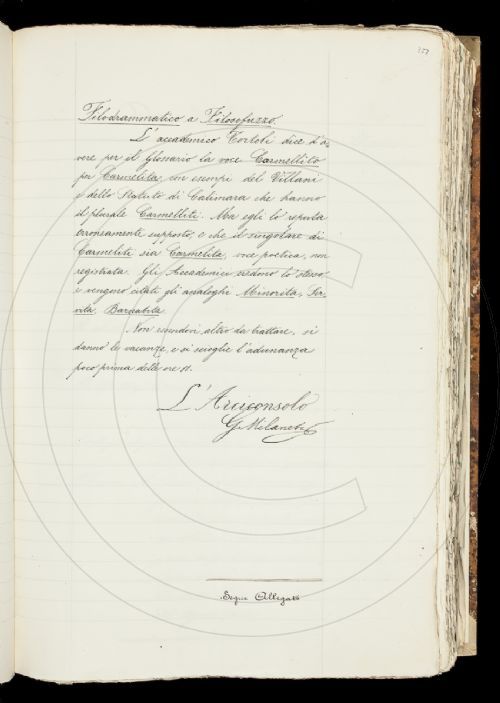 357
Filodrammatico a Filosofuzzo.
L'accademico Tortoli dice d'a,
vere per il Glossario la voce Carmellito
per Carmelita, con esempi del Villani
e dello Statuto di Calimara che hanno
il plurale Carmelliti. Ma egli lo reputa
erroneamente supposto, e che il singolare di
Carmeliti sia Carmelita, voce poetica, non
registrata. Gli Accademici credono lo stesso
e vengono citati gli analoghi Minorita, Ser,
vita, Barnabita.
Non essendovi altro da trattare, si
danno le vacanze, e si scioglie l'adunanza
poco prima delle ore 11.
L'Arciconsolo
G. Milanesi
Segue Allegato